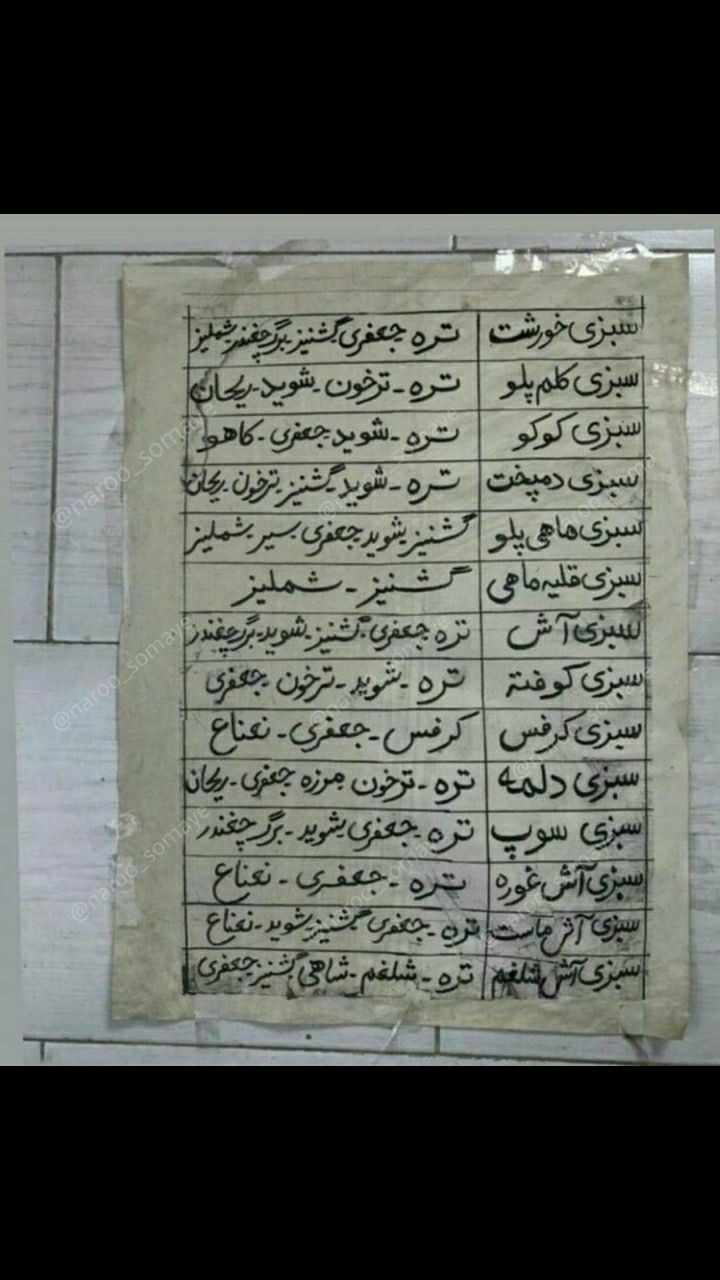 سبزی خورشت تره - جعفری - گشنیز - برگ چغندر - شملیز
سبزی کلم پلو تره - ترخون - شوید - ریحان
سبزی کوکو تره - شوید - جعفری - کاهو
سبزی دمپخت تره - شوید - گشنیز - ترخون - ریحان
سبزی ماهی پلو گشنیز - شوید - جعفری - سیر - شملیز
سبزی قلیه ماهی گشنیز - شملیز
سبزی آش تره - جعفری - گشنیز - شوید - برگ چغندر
سبزی کوفته تره - شوید - ترخون - جعفری
سبزی کرفس کرفس - جعفری - نعناع
سبزی دلمه تره - ترخون - مرزه - جعفری - ریحان
سبزی سوپ تره - جعفری - شوید - برگ چغندر
سبزی آش غوره تره - جعفری - نعناع
سبزی آش ماست تره - جعفری - گشنیز - شوید - نعناع
سبزی آش شلغم تره - شلغم - شاهی - گشنیز - جعفری
@naroo_somaye